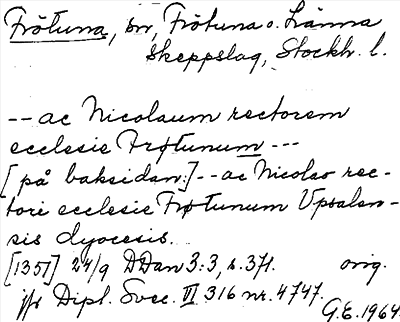 Frötuna, sn, Frötuna o. Länna
skeppslag, Stockh. l.
-- ac Nicolaum rectorem
ecclesie Frøtunum ---
[på baksidan:] -- ac Nicolao rec-
tori ecclesie Frøtunum Upsalen-
sis dyocesis.
[1351] 24/9 DDan 3:3, s. 371. orig.
jfr Dipl. Svec. VI 316 nr. 4747.
G.E. 1964.